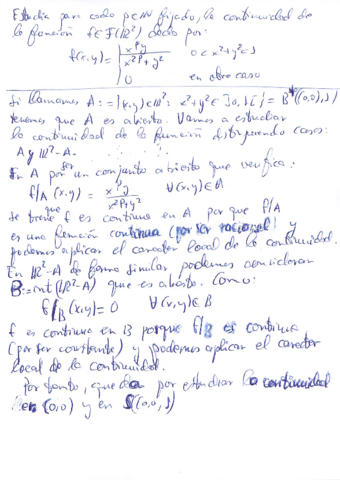 Estudia para cada p∈ℕ fijado, la continuidad de
la función f∈F(ℝ²) dada por:
f(x,y) = { x^p y / (x^{2p} + y²)   0 < x²+y² < 1
0   en otro caso
Si llamamos A := {(x,y)∈ℝ²: x²+y² ∈ ]0,1[} = B*((0,0),1)
tenemos que A es abierto. Vamos a estudiar
la continuidad de la función distinguiendo casos:
A y ℝ²-A.
En A por ser un conjunto abierto que verifica:
f/A (x,y) = x^p y / (x^{2p} + y²)   ∀(x,y)∈A
se tiene que f es continua en A por que f/A
es una función continua (por ser racional) y
podemos aplicar el caracter local de la continuidad.
En ℝ²-A de forma similar podemos considerar
B := int(ℝ²-A) que es abierto. Como:
f/B (x,y) = 0   ∀(x,y)∈B
f es continua en B porque f/B es continua
(por ser constante) y podemos aplicar el caracter
local de la continuidad.
Por tanto, queda por estudiar la continuidad
en (0,0) y en S((0,0),1)